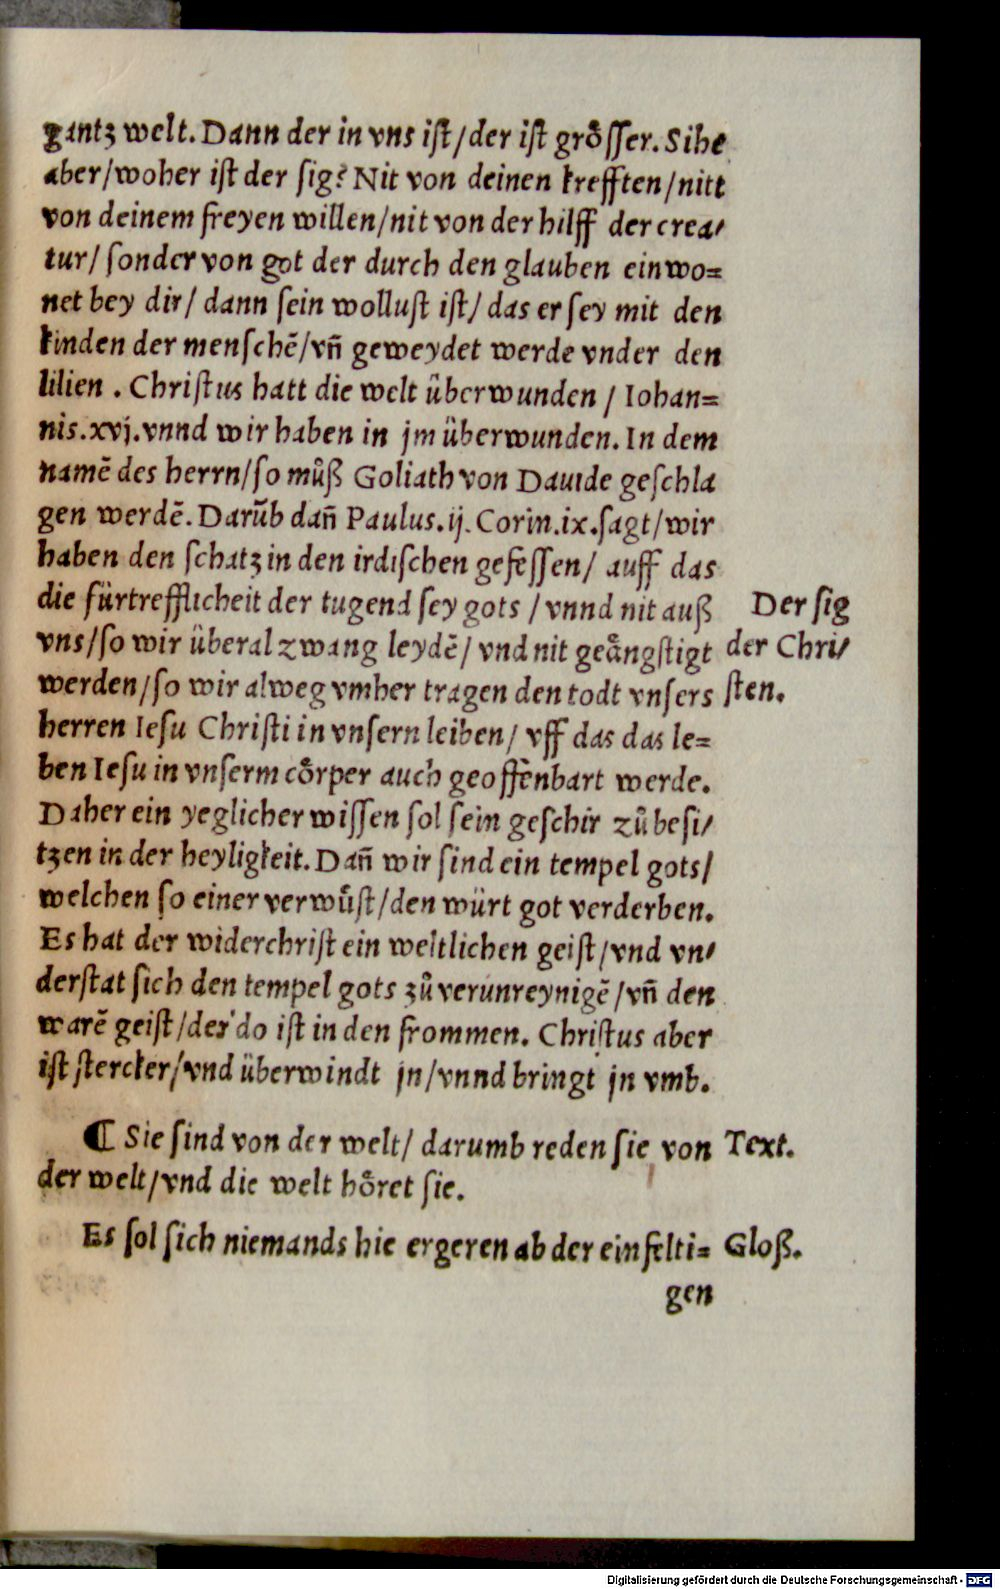 gantz welt. Dann der in vns ist/der ist grösser. Sihe
aber/woher ist der sig? Nit von deinen krefften/nitt
von deinem freyen willen/nit von der hilff der crea/
tur/ sonder von got der durch den glauben einwo=
net bey dir/ dann sein wollust ist/ das er sey mit den
kinden der menschē/vñ geweydet werde vnder den
lilien . Christus hatt die welt überwunden / Iohan=
nis.xvj.vnnd wir haben in jm überwunden. In dem
namē des herrn/so můß Goliath von Dauide geschla
gen werdē. Darūb dañ Paulus.ij. Corin.ix.sagt/wir
haben den schatz in den irdischen gefessen/ auff das
die fürtrefflicheit der tugend sey gots /vnnd nit auß
vns/so wir überal zwang leydē/ vnd nit geängstigt
werden/so wir alweg vmher tragen den todt vnsers
herren Iesu Christi in vnsern leiben/ vff das das le=
ben Iesu in vnserm cörper auch geoffenbart werde.
Daher ein yeglicher wissen sol sein geschir zů besi/
tzen in der heyligkeit. Dañ wir sind ein tempel gots/
welchen so einer verwůst/den würt got verderben.
Es hat der widerchrist ein weltlichen geist/vnd vn/
derstat sich den tempel gots zů verunreynigē/vñ den
warē geist/der do ist in den frommen. Christus aber
ist stercker/vnd überwindt jn/vnnd bringt jn vmb.
Der sig
der Chri/
sten.
¶ Sie sind von der welt/ darumb reden sie von
der welt/vnd die welt höret sie.
Text.
Es sol sich niemands hie ergeren ab der einfelti=
Gloß.
gen
Digitalisierung gefördert durch die Deutsche Forschungsgemeinschaft - DFG